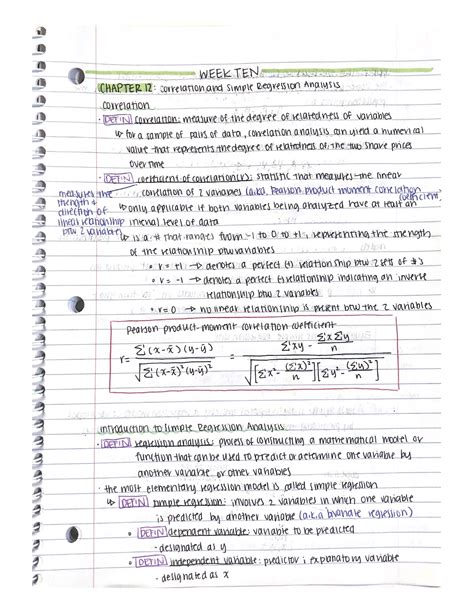 WEEK TEN
CHAPTER 12: Correlation and Simple Regression Analysis
correlation
· DEF'N correlation: measure of the degree of relatedness of variables
↳ for a sample of pairs of data, correlation analysis can yield a numerical
value that represents the degree of relatedness of the two share prices
over time
· DEF'N coefficient of correlation (r): statistic that measures the linear
correlation of 2 variables (a.k.a. Pearson product moment correlation
coefficient)
measures the
strength &
direction of
linear relationship
btw 2 variables
↳ only applicable if both variables being analyzed have at least an
interval level of data
↳ is a # that ranges from -1 to 0 to +1, representing the strength
of the relationship btw variables
∘ r = +1 → denotes a perfect (+) relationship btw 2 sets of #'s
∘ r = -1 → denotes a perfect (-) relationship indicating an inverse
relationship btw 2 variables
∘ r = 0 → no linear relationship is present btw the 2 variables
Pearson product-moment correlation coefficient
r = Σ(x-x̄)(y-ȳ) / √Σ(x-x̄)²(y-ȳ)² = Σxy - ΣxΣy/n / √[Σx² - (Σx)²/n][Σy² - (Σy)²/n]
introduction to simple Regression Analysis
· DEF'N regression analysis: process of constructing a mathematical model or
function that can be used to predict or determine one variable by
another variable or other variables
· the most elementary regression model is called simple regression
↳ DEF'N simple regression: involves 2 variables in which one variable
is predicted by another variable (a.k.a bivariate regression)
∘ DEF'N dependent variable: variable to be predicted
- designated as y
∘ DEF'N independent variable: predictor; explanatory variable
- designated as x